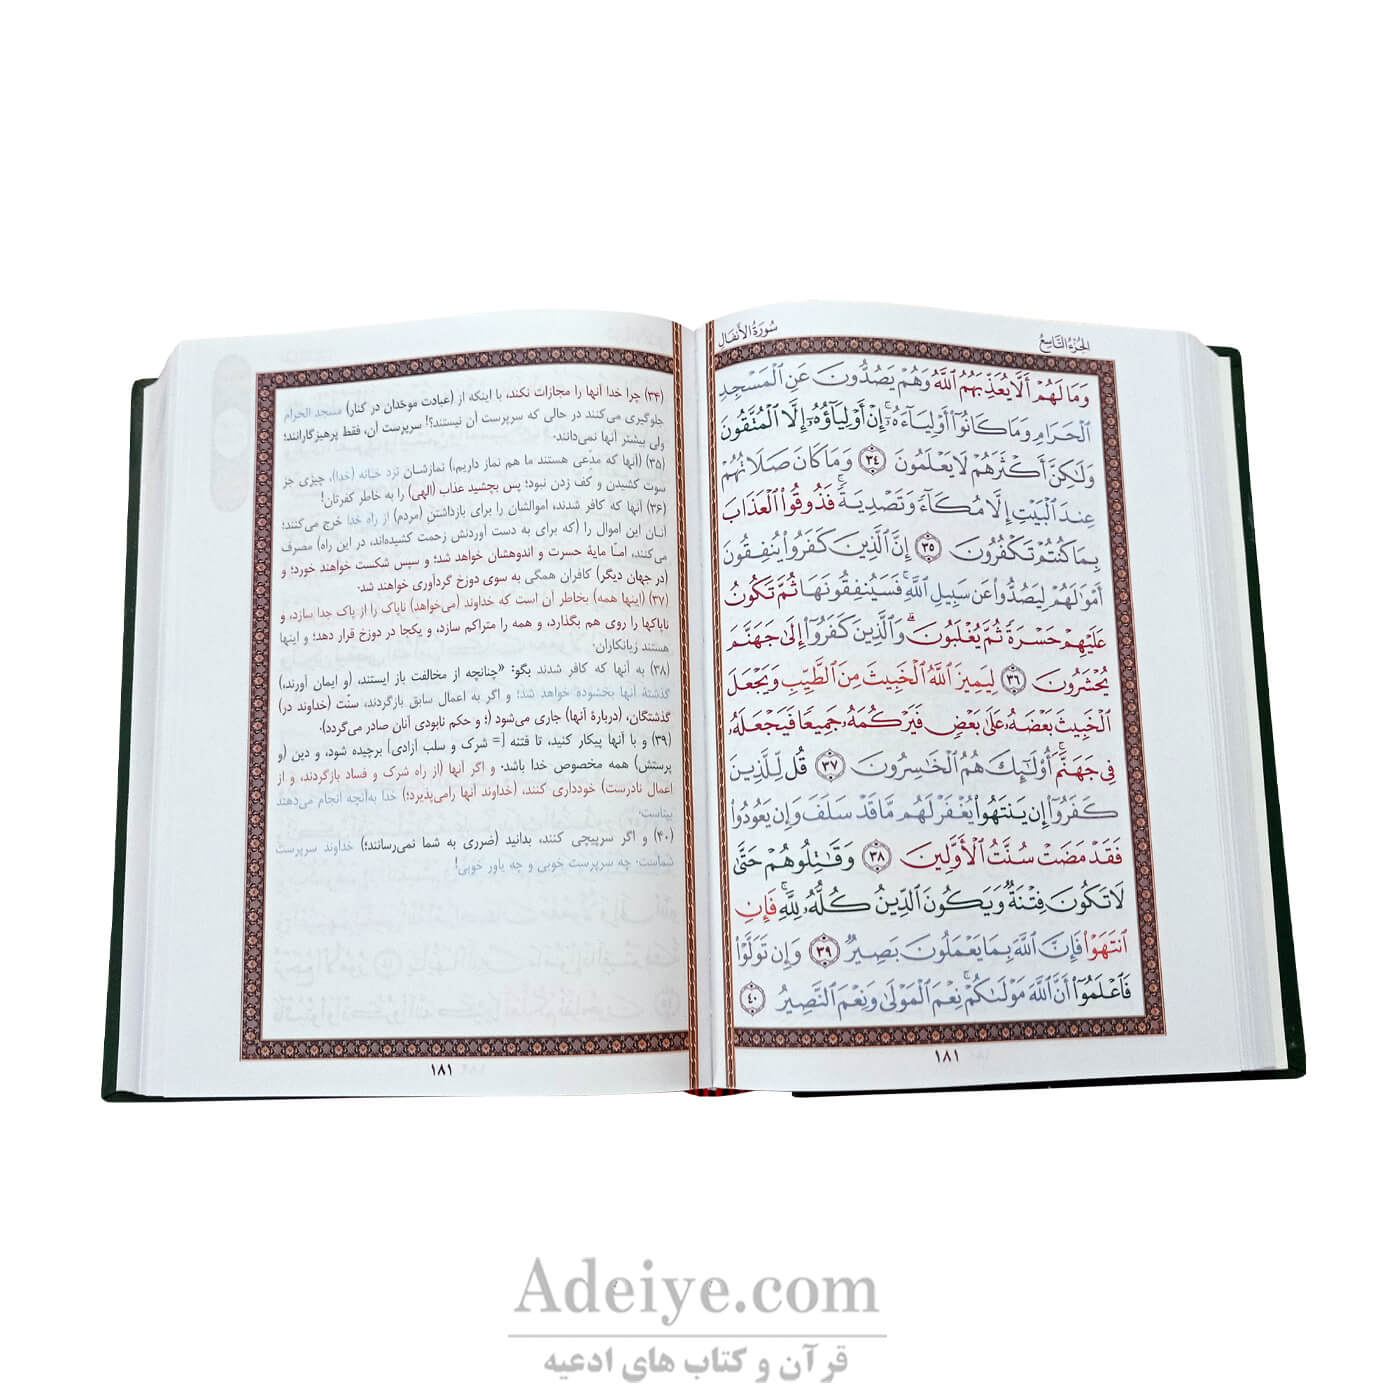 سُورَةُ الأَنفَال
الجُزءُ التَّاسِعُ
وَمَا لَهُمْ أَلَّا يُعَذِّبَهُمُ ٱللَّهُ وَهُمْ يَصُدُّونَ عَنِ ٱلْمَسْجِدِ
ٱلْحَرَامِ وَمَا كَانُوٓا۟ أَوْلِيَآءَهُۥٓ ۚ إِنْ أَوْلِيَآؤُهُۥٓ إِلَّا ٱلْمُتَّقُونَ
وَلَٰكِنَّ أَكْثَرَهُمْ لَا يَعْلَمُونَ ٣٤ وَمَا كَانَ صَلَاتُهُمْ
عِندَ ٱلْبَيْتِ إِلَّا مُكَآءً وَتَصْدِيَةً ۚ فَذُوقُوا۟ ٱلْعَذَابَ
بِمَا كُنتُمْ تَكْفُرُونَ ٣٥ إِنَّ ٱلَّذِينَ كَفَرُوا۟ يُنفِقُونَ
أَمْوَٰلَهُمْ لِيَصُدُّوا۟ عَن سَبِيلِ ٱللَّهِ ۚ فَسَيُنفِقُونَهَا ثُمَّ تَكُونُ
عَلَيْهِمْ حَسْرَةً ثُمَّ يُغْلَبُونَ ۗ وَٱلَّذِينَ كَفَرُوٓا۟ إِلَىٰ جَهَنَّمَ
يُحْشَرُونَ ٣٦ لِيَمِيزَ ٱللَّهُ ٱلْخَبِيثَ مِنَ ٱلطَّيِّبِ وَيَجْعَلَ
ٱلْخَبِيثَ بَعْضَهُۥ عَلَىٰ بَعْضٍ فَيَرْكُمَهُۥ جَمِيعًا فَيَجْعَلَهُۥ
فِى جَهَنَّمَ ۚ أُو۟لَٰٓئِكَ هُمُ ٱلْخَٰسِرُونَ ٣٧ قُل لِّلَّذِينَ
كَفَرُوٓا۟ إِن يَنتَهُوا۟ يُغْفَرْ لَهُم مَّا قَدْ سَلَفَ وَإِن يَعُودُوا۟
فَقَدْ مَضَتْ سُنَّتُ ٱلْأَوَّلِينَ ٣٨ وَقَٰتِلُوهُمْ حَتَّىٰ
لَا تَكُونَ فِتْنَةٌ وَيَكُونَ ٱلدِّينُ كُلُّهُۥ لِلَّهِ ۚ فَإِنِ
ٱنتَهَوْا۟ فَإِنَّ ٱللَّهَ بِمَا يَعْمَلُونَ بَصِيرٌ ٣٩ وَإِن تَوَلَّوْا۟
فَٱعْلَمُوٓا۟ أَنَّ ٱللَّهَ مَوْلَىٰكُمْ ۚ نِعْمَ ٱلْمَوْلَىٰ وَنِعْمَ ٱلنَّصِيرُ ٤٠
۱۸۱
(۳۴) چرا خدا آنها را مجازات نکند، با اینکه از (عبادت موحّدان در کنار) مسجد الحرام
جلوگیری می‌کنند در حالی که سرپرست آن نیستند؟! سرپرست آن، فقط پرهیزگارانند؛
ولی بیشتر آنها نمی‌دانند.
(۳۵) (آنها که مدّعی هستند ما هم نماز داریم،) نمازشان نزد خانه (خدا)، چیزی جز
سوت کشیدن و کف زدن نبود؛ پس بچشید عذاب (الهی) را به خاطر کفرتان!
(۳۶) آنها که کافر شدند، اموالشان را برای بازداشتن (مردم) از راه خدا خرج می‌کنند؛
آنان این اموال را (که برای به دست آوردنش زحمت کشیده‌اند، در این راه) مصرف
می‌کنند، امّا مایهٔ حسرت و اندوهشان خواهد شد؛ و سپس شکست خواهند خورد؛ و
(در جهان دیگر) کافران همگی به سوی دوزخ گردآوری خواهند شد.
(۳۷) (اینها همه) بخاطر آن است که خداوند (می‌خواهد) ناپاک را از پاک جدا سازد، و
ناپاکها را روی هم بگذارد، و همه را متراکم سازد، و یکجا در دوزخ قرار دهد؛ و اینها
هستند زیانکاران.
(۳۸) به آنها که کافر شدند بگو: «چنانچه از مخالفت باز ایستند، (و ایمان آورند،)
گذشتهٔ آنها بخشوده خواهد شد؛ و اگر به اعمال سابق بازگردند، سنّت (خداوند در)
گذشتگان، (دربارهٔ آنها) جاری می‌شود (؛ و حکم نابودی آنان صادر می‌گردد).
(۳۹) و با آنها پیکار کنید، تا فتنه [= شرک و سلب آزادی] برچیده شود، و دین (و
پرستش) همه مخصوص خدا باشد. و اگر آنها (از راه شرک و فساد بازگردند، و از
اعمال نادرست) خودداری کنند، (خداوند آنها را می‌پذیرد؛) خدا به آنچه انجام می‌دهند
بیناست.
(۴۰) و اگر سرپیچی کنند، بدانید (ضرری به شما نمی‌رسانند؛) خداوند سرپرست
شماست. چه سرپرست خوبی و چه یاور خوبی!
۱۸۱
Adeiye.com
قرآن و کتاب های ادعیه